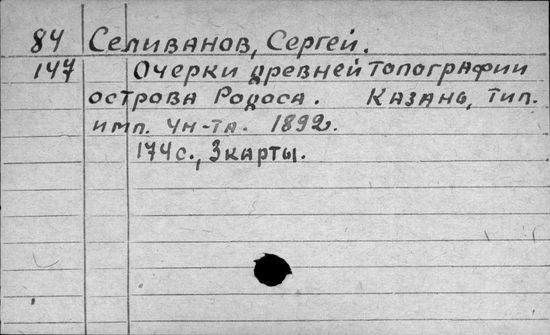 84 Селиванов, Сергей.
147 Очерки древней топографии
острова Родоса. Казань, тип.
имп. ун-та. 1892.
174 с., 3 карты.